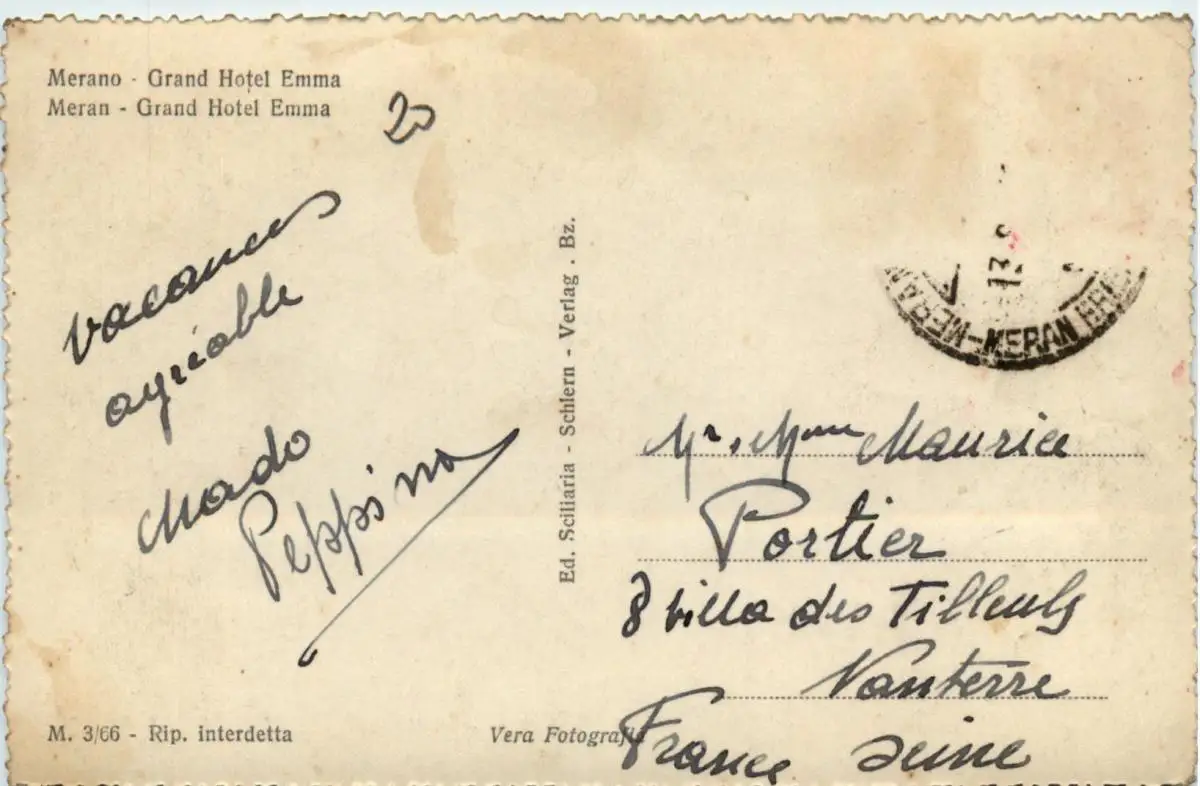 Merano - Grand Hotel Emma
Meran - Grand Hotel Emma
20
vacances
agréable
Mado
Peppino
Ed. Sciliaria - Schlern - Verlag . Bz.
13
MERAN-MERAN
Mr, Mme Maurice
Portier
8 villa des Tilleuls
Nanterre
France Seine
M. 3/66 - Rip. interdetta
Vera Fotografia